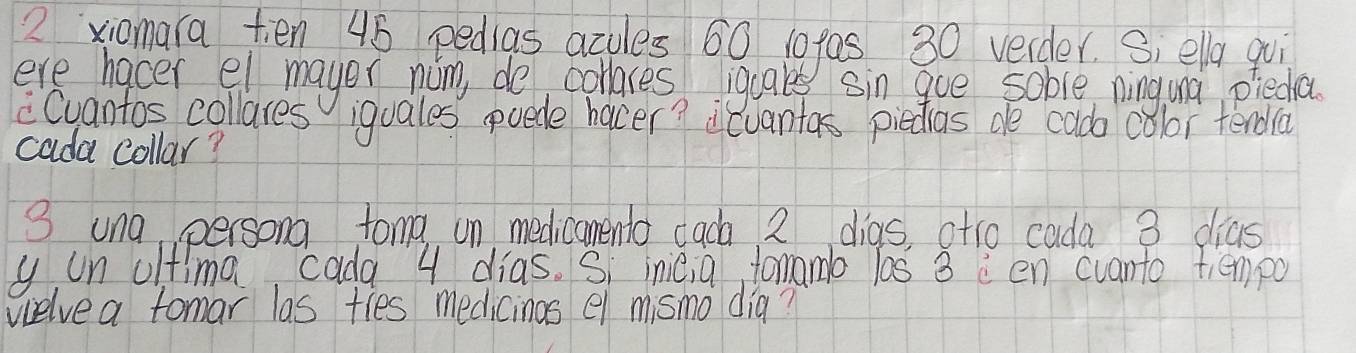 2 xiomara tien 45 pedras azules 60 rojas 30 verder. Si ella qui
ere hacer el mayor núm, de collares iguales sin que sobre ninguna piedra.
¿Cuantos collares iguales puede hacer? ¿cuantas piedras de cada color tendra
cada collar?
3 una persona toma un medicamento cada 2 dias, otro cada 3 dias
y un ultima cada 4 días. Si inicia tomamdo las 3 ¿ en cuanto tiempo
vuelve a tomar las tres medicinas el mismo dia?